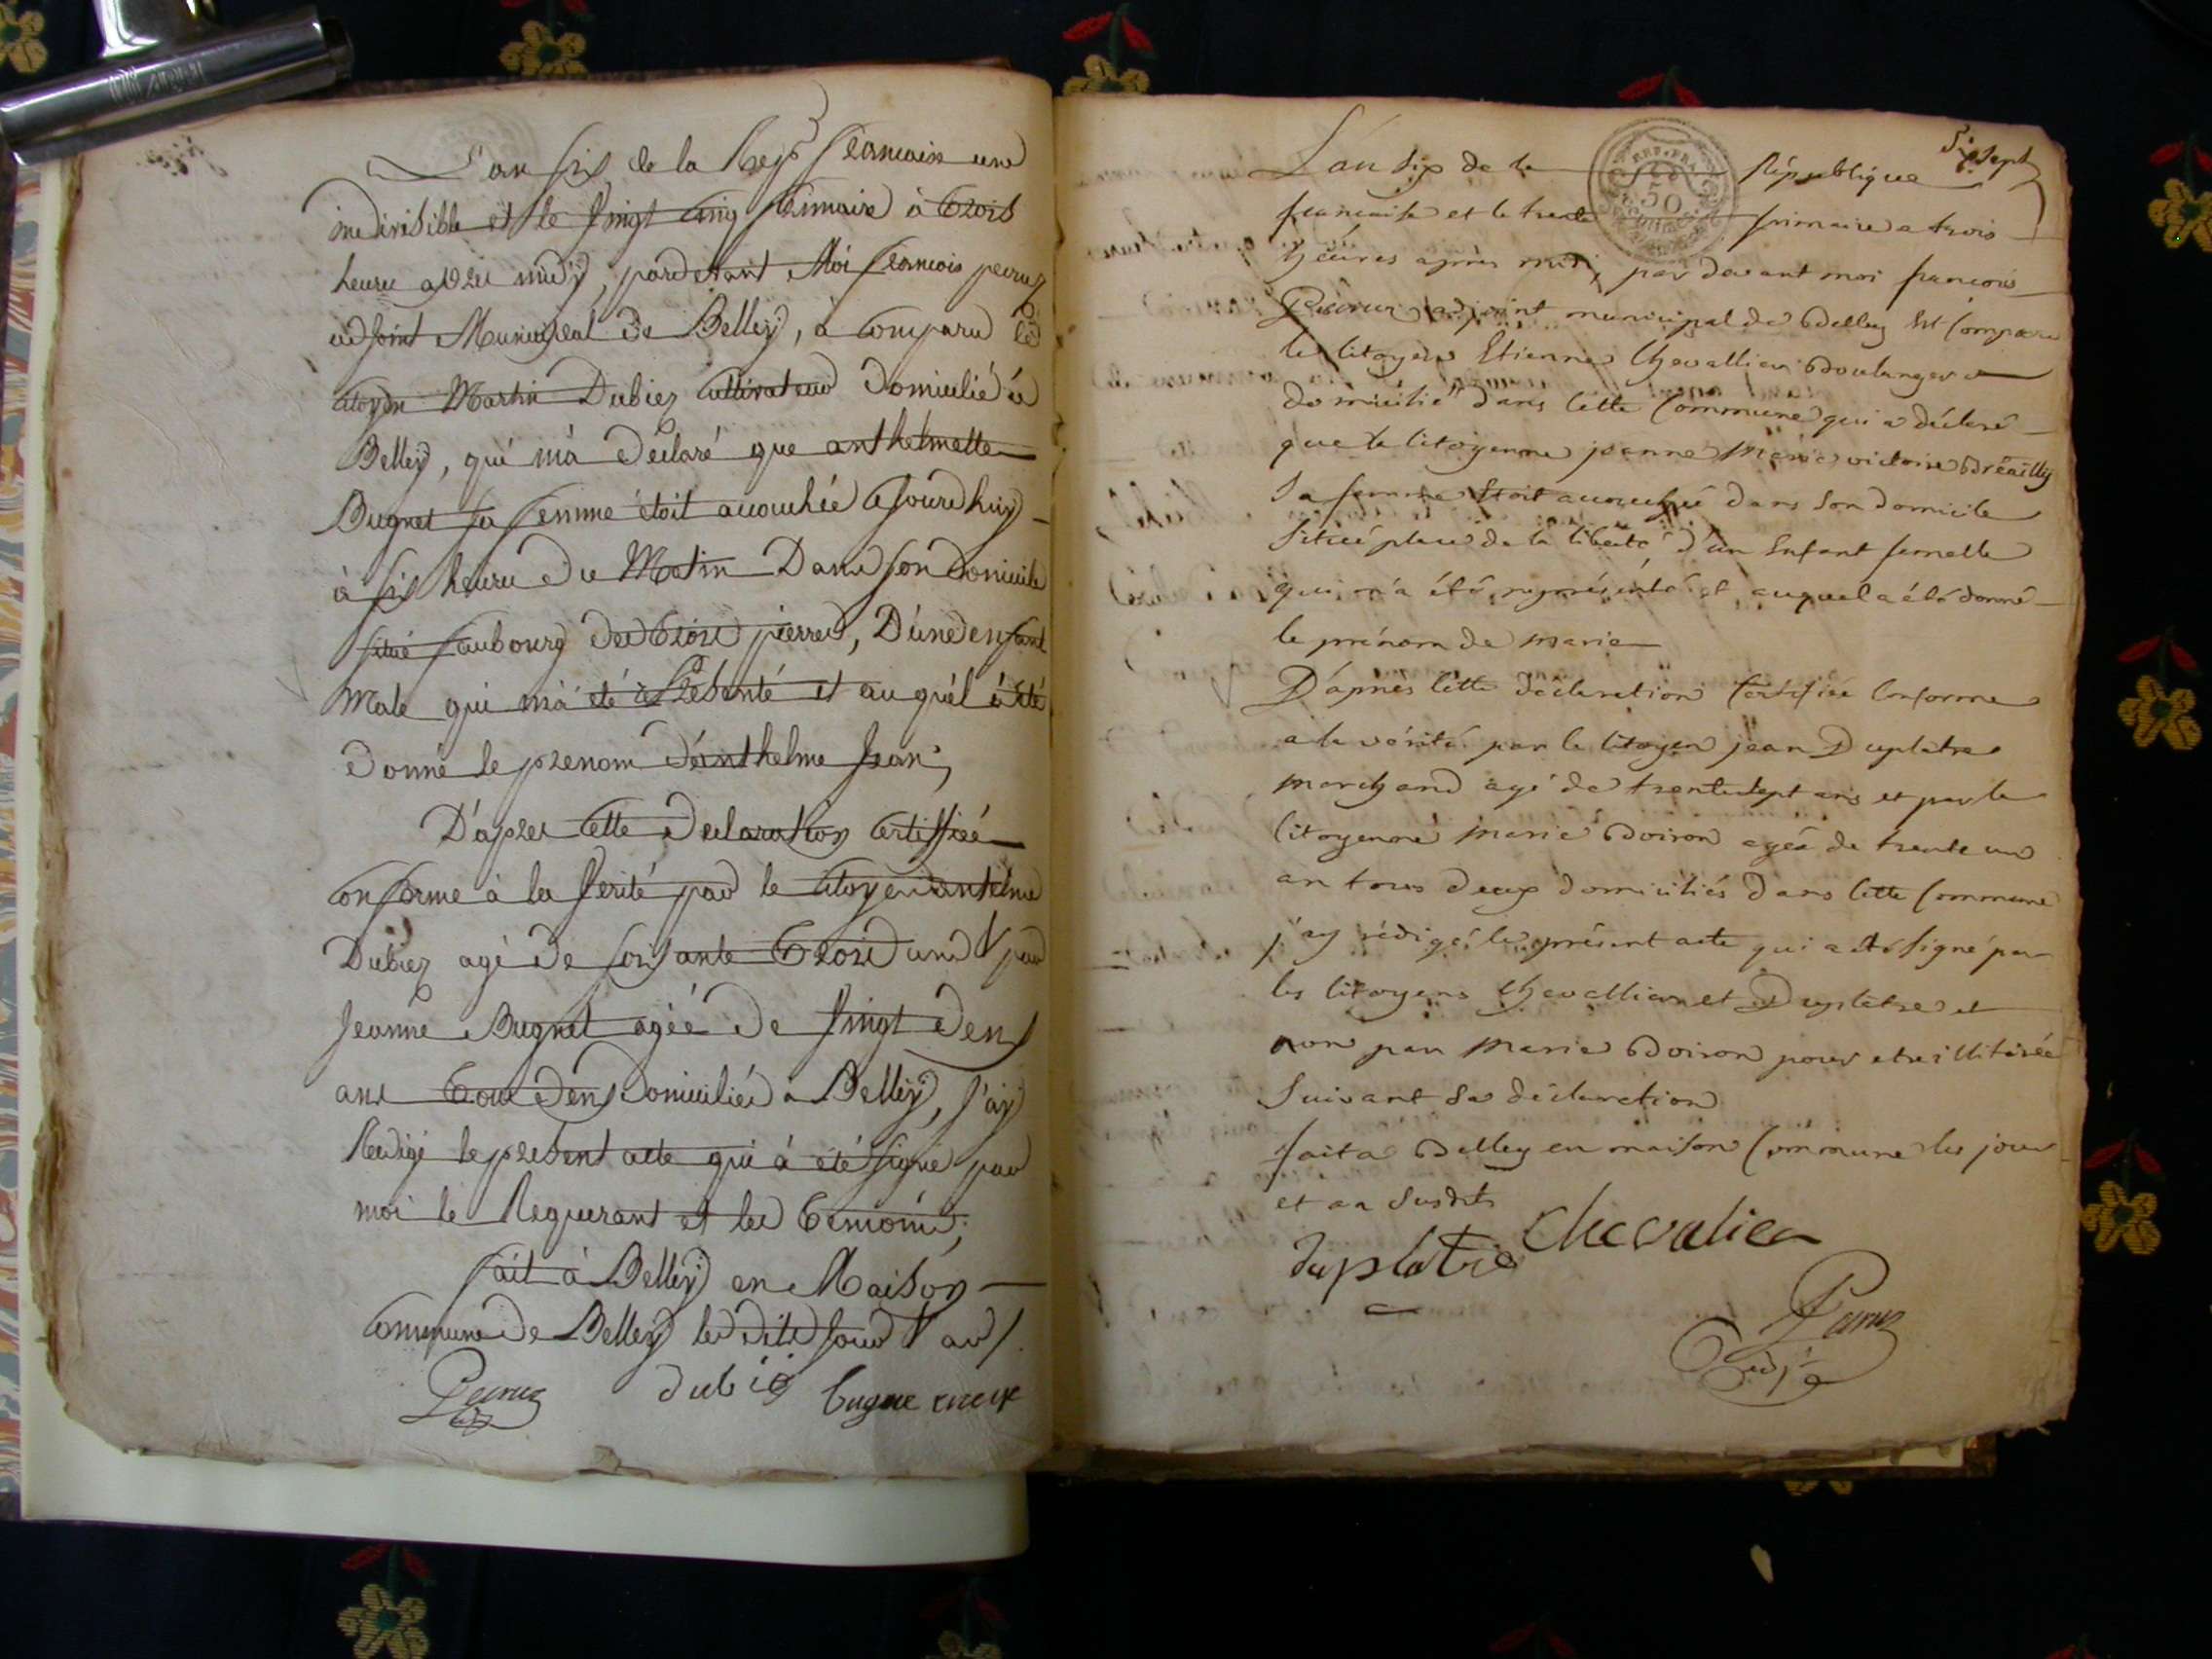 L'an six de la Rep. francaise une
indivisible et le vingt cinq frimaire à trois
heures apres midy, pardevant Moi francois peeruz
adjoint Municipal de Belley, a comparu le
citoyen Martin Dubiez cultivateur domicilié à
Belley, qui m'a déclaré que anthelmette
Bugnet sa femme étoit accouchée ajourdhuy
à six heures du Matin Dans son domicile
situé faubourg des trois pierres, D'une enfant
Male qui m'a été représenté et au quél à été
donné le prenom d'anthelme Jean;
D'apres cette declaration certiffiée
conforme à la verité par le citoyen antelme
Dubiez agé de soixante trois ans & par
Jeanne Bugnet agée de vingt deux
ans tous deux domiciliés a Belley, j'ay
Redigé le présent acte qui à été signé par
moi le Requerant et les temoins;
fait à Belley en Maison
commune de Belley les dits jours & an
Peeruz dubié bugne
Sept
L'an six de la République
francaise et le trente frimaire a trois
heures après midi, par devant moi francois
adjoint municipal de Belley est comparu
le citoyen Etienne Chevallier Boulanger
domicilié dans cette commune qui a déclaré
que la citoyenne jeanne Marie victoire Bréailly
sa femme étoit accouchée dans son domicile
situé place de la liberté d'un Enfant femelle
qui m'a été représenté et auquel a été donné
le prénom de marie
D'après cette déclaration certifiée conforme
a la vérité par le citoyen jean Duplatre
marchand agé de trente sept ans et par la
citoyenne marie Boiron agée de trente un
an tous deux domiciliés dans cette commune
j'ay rédigé le présent acte qui a été signé par
les citoyens chevallier et Duplatre et
non par Marie Boiron pour etre illitérée
suivant sa déclaration
fait a Belley en maison commune les jour
et an susdits
duplatre chevalier
Peeruz
adj
REP. FRA.
50